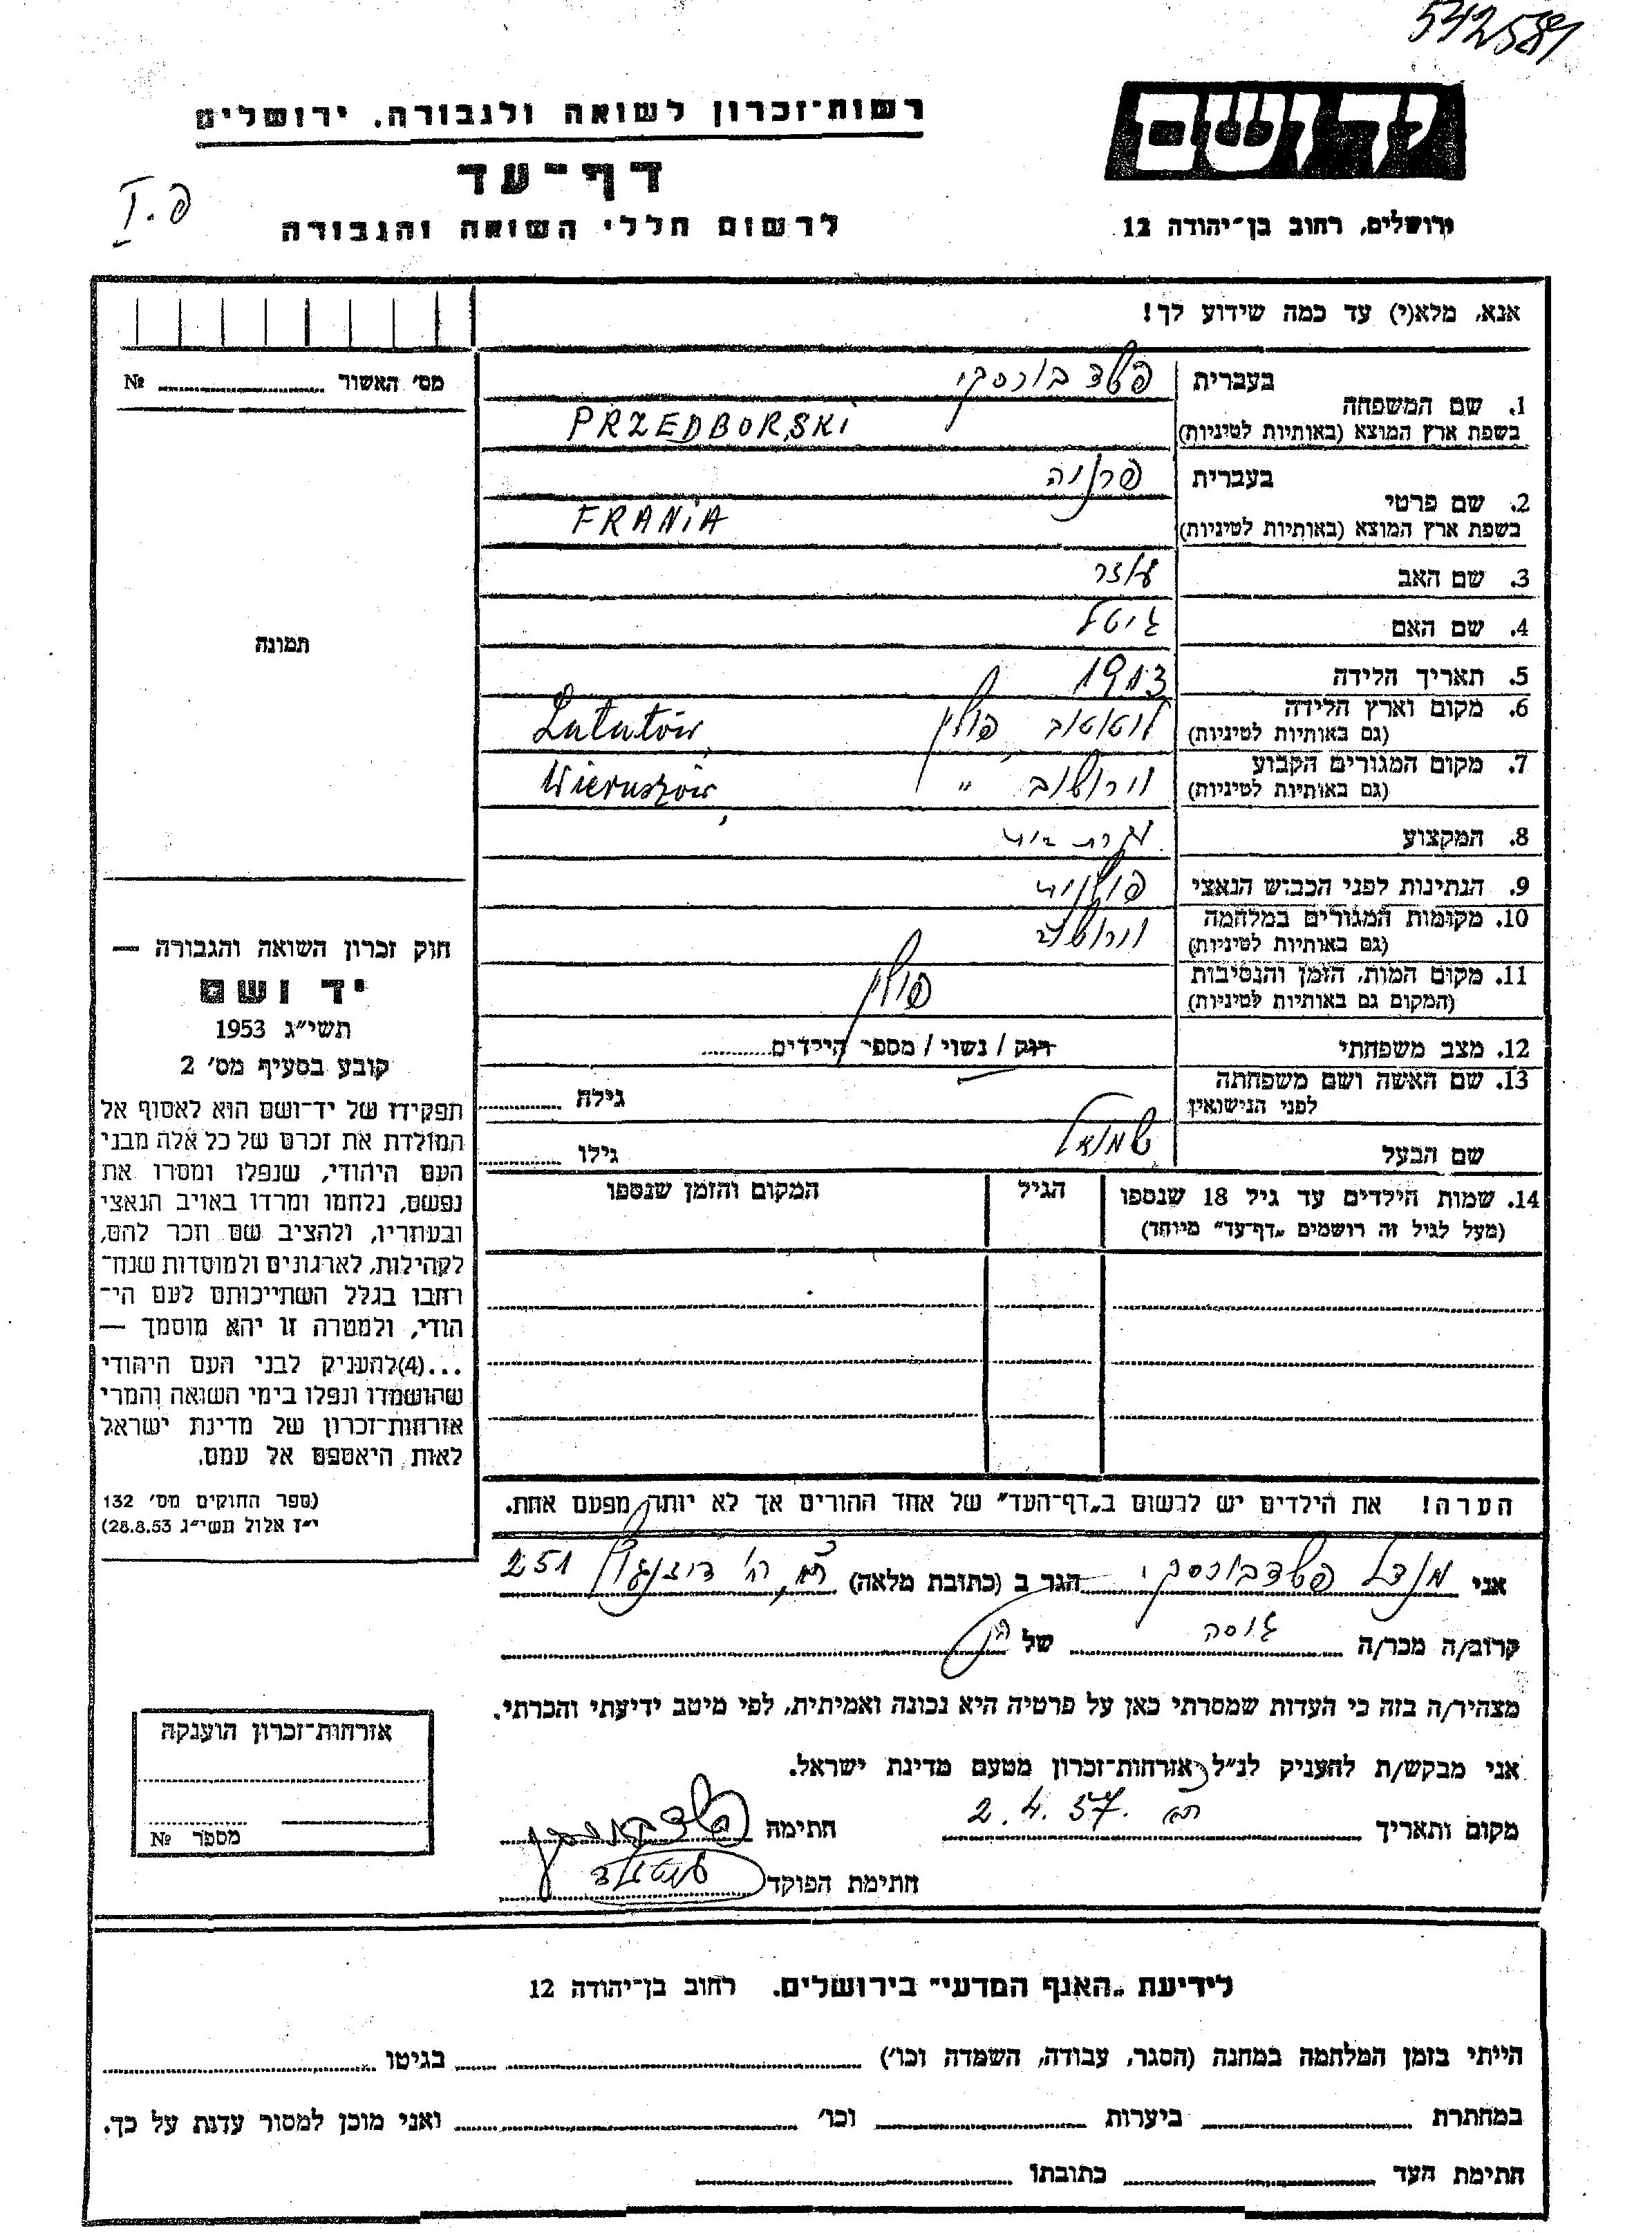 542581
יד ושם
ירושלים, רחוב בן־יהודה 12
רשות־זכרון לשואה ולגבורה, ירושלים
דף־עד
לרשום חללי השואה והגבורה
פ.I
אנא, מלא(י) עד כמה שידוע לך!
מס׳ האשור № ....................
1. שם המשפחה
בעברית פשדבורסקי
בשפת ארץ המוצא (באותיות לטיניות) PRZEDBORSKI
2. שם פרטי
בעברית פרניה
בשפת ארץ המוצא (באותיות לטיניות) FRANIA
3. שם האב
4. שם האם גיטל
5. תאריך הלידה 1913
6. מקום וארץ הלידה
(גם באותיות לטיניות) לוטוטוב פולין Lututów
7. מקום המגורים הקבוע
(גם באותיות לטיניות) וירושוב " Wieruszów
8. המקצוע עקרת בית
9. הנתינות לפני הכבוש הנאצי פולנית
10. מקומות המגורים במלחמה
(גם באותיות לטיניות) וירושוב
11. מקום המות, הזמן והנסיבות
(המקום גם באותיות לטיניות) פולין
12. מצב משפחתי רווק / נשוי / מספר הילדים..........
13. שם האשה ושם משפחתה
לפני הנישואין גילה ..........
שם הבעל שמואל גילו ..........
14. שמות הילדים עד גיל 18 שנספו
(מעל לגיל זה רושמים „דף־עד” מיוחד)
הגיל
המקום והזמן שנספו
הערה! את הילדים יש לרשום ב„דף־העד” של אחד ההורים אך לא יותר מפעם אחת.
תמונה
חוק זכרון השואה והגבורה —
יד ושם
תשי״ג 1953
קובע בסעיף מס׳ 2
תפקידו של יד־ושם הוא לאסוף אל
המולדת את זכרם של כל אלה מבני
העם היהודי, שנפלו ומסרו את
נפשם, נלחמו ומרדו באויב הנאצי
ובעוזריו, ולהציב שם וזכר להם,
לקהילות, לארגונים ולמוסדות שנח־
רחבו בגלל השתייכותם לעם הי־
הודי, ולמטרה זו יהא מוסמך —
...(4)להעניק לבני העם היהודי
שהושמדו ונפלו בימי השואה והמרי
אזרחות־זכרון של מדינת ישראל
לאות היאספם אל עמם.
(ספר החוקים מס׳ 132
י״ז אלול תשי״ג 28.8.53)
אני מנדל פשדבורסקי הגר ב (כתובת מלאה) ת״א, רח׳ דיזנגוף 251
קרוב/ה מכר/ה גיסה של
מצהיר/ה בזה כי העדות שמסרתי כאן על פרטיה היא נכונה ואמיתית, לפי מיטב ידיעתי והכרתי.
אני מבקש/ת להעניק לנ״ל אזרחות־זכרון מטעם מדינת ישראל.
מקום ותאריך ת״א 2.4.57 חתימה
חתימת הפוקד
אזרחות־זכרון הוענקה
מספר №
לידיעת „האגף המדעי” בירושלים. רחוב בן־יהודה 12
הייתי בזמן המלחמה במחנה (הסגר, עבודה, השמדה וכו׳) .................... בגיטו ....................
במחתרת .................... ביערות .................... וכו׳ .................... ואני מוכן למסור עדות על כך.
חתימת העד .................... כתובתו ....................